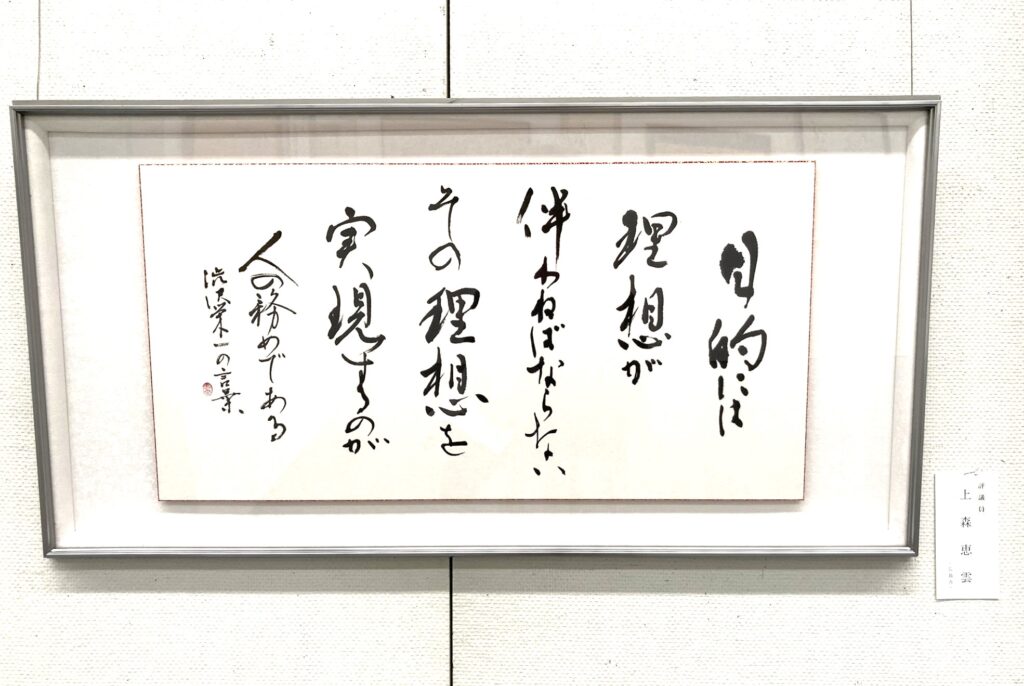 目的には
理想が
伴わねばならない
その理想を
実現するのが
人の務めである
渋沢栄一の言葉
評議員
上森恵雲